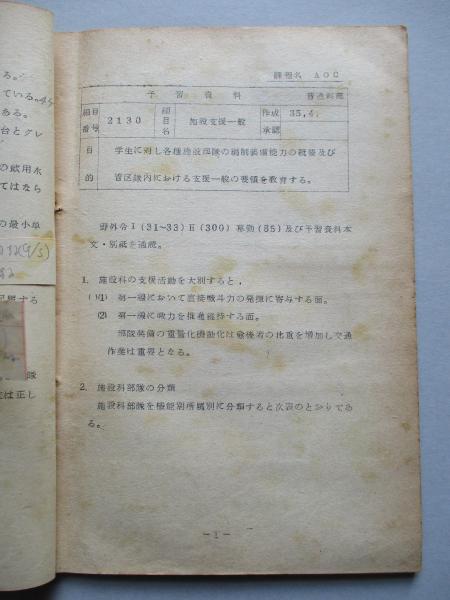 る。
ている。
ある。
台とクレ
の飲用水
てはなら
の最小単
隊
は正し
課程名 AOC
予習資料
普通科部
細目番号 2130 細目名 施設支援一般 作成 35,4. 承認
目的 学生に対し各種施設部隊の編制装備能力の概要及び
管区隊内における支援一般の要領を教育する。
野外令Ⅰ(31~33)Ⅱ(300)幕勤(85)及び予習資料本
文・別紙を通読。
1. 施設科の支援活動を大別すると、
(1) 第一線において直接戦斗力の発揮に寄与する面。
(2) 第一線に戦力を推進維持する面。
部隊装備の重量化機動化は最後者の比重を増加し交通
作業は重要となる。
2. 施設科部隊の分類
施設科部隊を機能別所属別に分類すると次表のとおりであ
る。
-1-